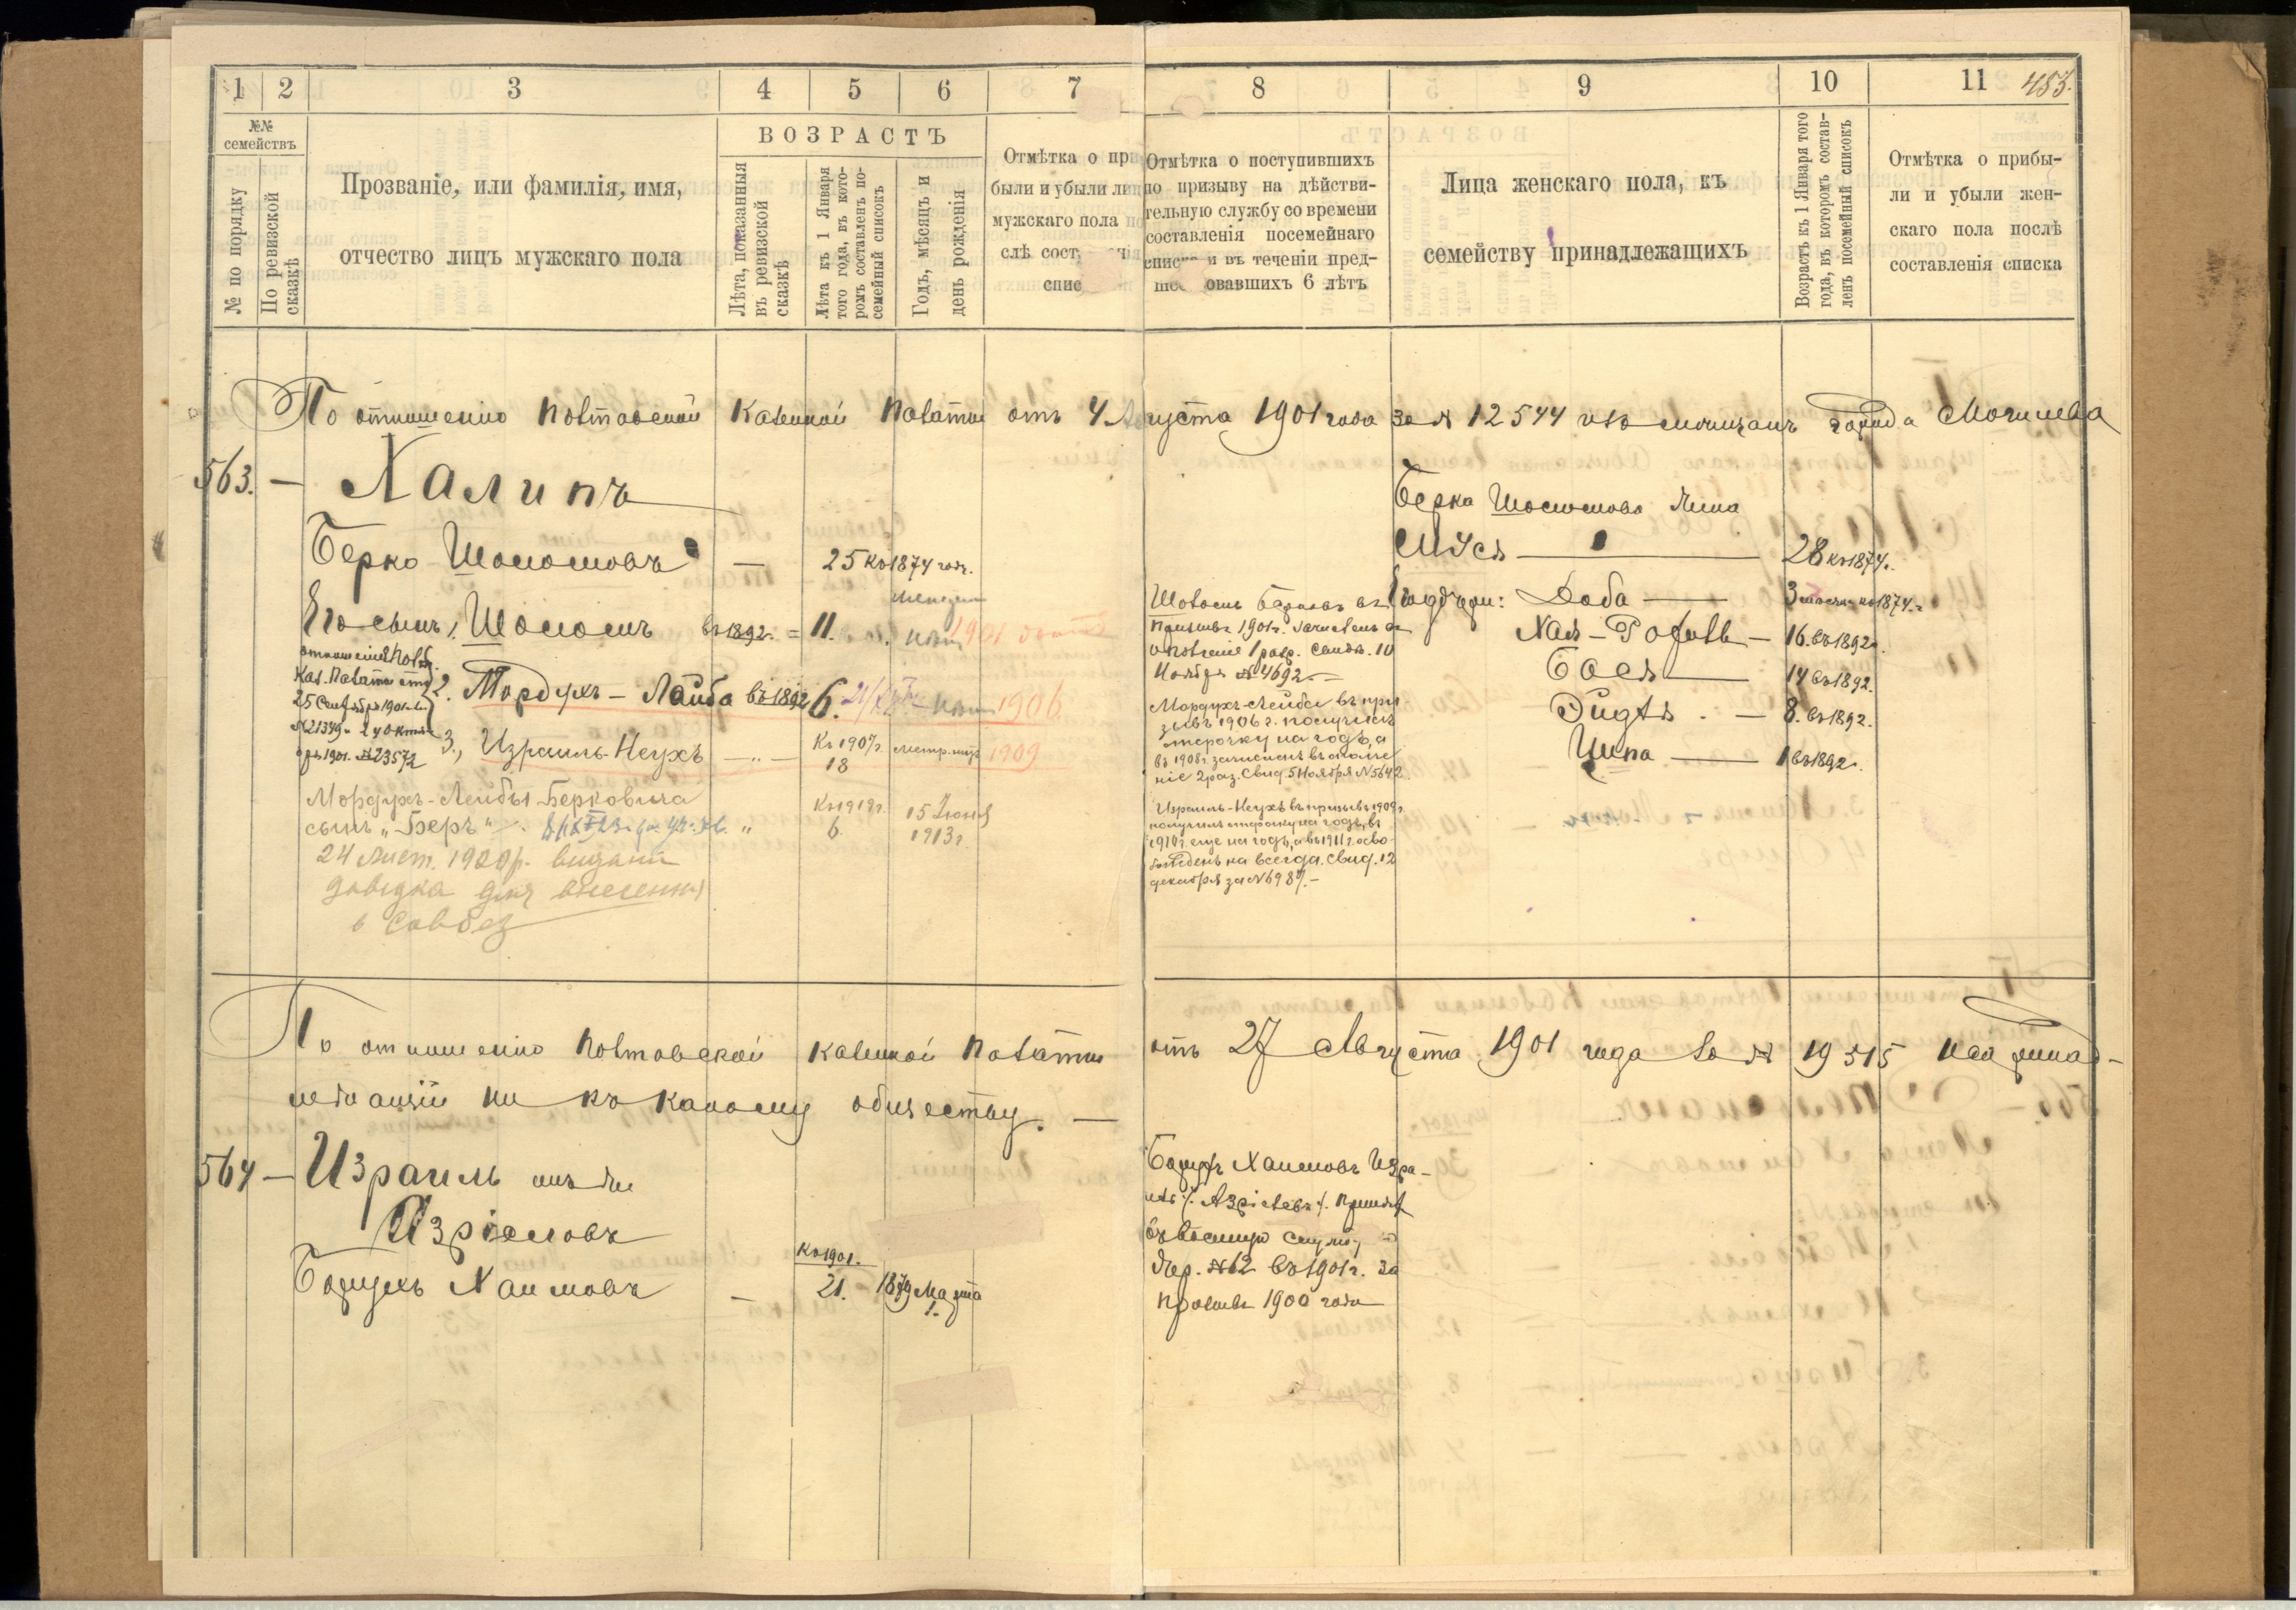 1 2 3 4 5 6 7 8 9 10 11 453.
№№ семействъ
№ по порядку
По ревизской сказкѣ
Прозваніе, или фамилія, имя,
отчество лицъ мужскаго пола
ВОЗРАСТЪ
Лѣта, показанныя
въ ревизской
сказкѣ
Лѣта къ 1 Января
того года, въ кото-
ромъ составленъ по-
семейный списокъ
Годъ, мѣсяцъ и
день рожденія
Отмѣтка о при
были и убыли лиц
мужскаго пола по
слѣ сост
спис
Отмѣтка о поступившихъ
по призыву на дѣйстви-
тельную службу со времени
составленія посемейнаго
списка и въ теченіи пред-
шествовавшихъ 6 лѣтъ
Лица женскаго пола, къ
семейству принадлежащихъ
Возрастъ къ 1 Января того
года, въ которомъ состав-
ленъ посемейный списокъ
Отмѣтка о прибы-
ли и убыли жен-
скаго пола послѣ
составленія списка
По отношенію Полтавской Казенной Палаты отъ 4 Августа 1901 года за № 12544 изъ мѣщанъ города Могилева
563. — Халипъ
Берко Шоломовъ — 25 къ 1874 году.
Его сынъ 1, Шоломъ въ 1892 г. = 11. 1901
отношенія Полт.
Каз. Палаты отъ
25 Сентября 1901 г.
№ 21349 и 24 Октяб-
ря 1901. № 23572
2. Мордухъ-Лейба въ 1892 6. 1906
3., Израиль-Неухъ —„— Къ 1907 г. 18 1909
Мордухъ-Лейбы Берковича
сынъ „Беръ" „ Къ 1919 г. 6. 15 Іюня 1913 г.
24 Лист. 1920 р. видані
довідка для внесення
в Собез
Шоломъ Берковъ въ
призывъ 1901 г. зачисленъ въ
ополченіе 1 разр. Свид. 10
Ноября № 4692 —
Мордухъ-Лейба въ при
зывъ 1906 г. получилъ
отсрочку на годъ, а
въ 1908 г. зачисленъ въ ополче
ніе 2 раз. Свид. 5 Ноября № 5642
Израиль-Неухъ въ призывъ 1909 г.
получилъ отсрочку на годъ, въ
1910 г. еще на годъ, а въ 1911 г. осво-
божденъ на всегда. Свид. 12
декабря за № 6987. —
Берка Шоломова жена
Муся — 28 къ 1874 г.
дочери: Доба — 3 къ 1874 г.
Хая — 16. въ 1892 г.
Бася — 14 въ 1892.
Эйдля. — 8. въ 1892.
Ципа — 1 въ 1892 г.
По отношенію Полтавской Казенной Палаты отъ 27 Августа 1901 года за № 19515 непринад-
лежащій ни къ какому обществу. —
564 — Израиль или
Азріелевъ
Борухъ Хаимовъ — къ 1901. 21. 1879 Марта 1.
Борухъ Хаимовъ Изра-
иль /. Азріелевъ /. принятъ
въ военную службу по
жер. № 62 въ 1901 г. за
призывъ 1900 года